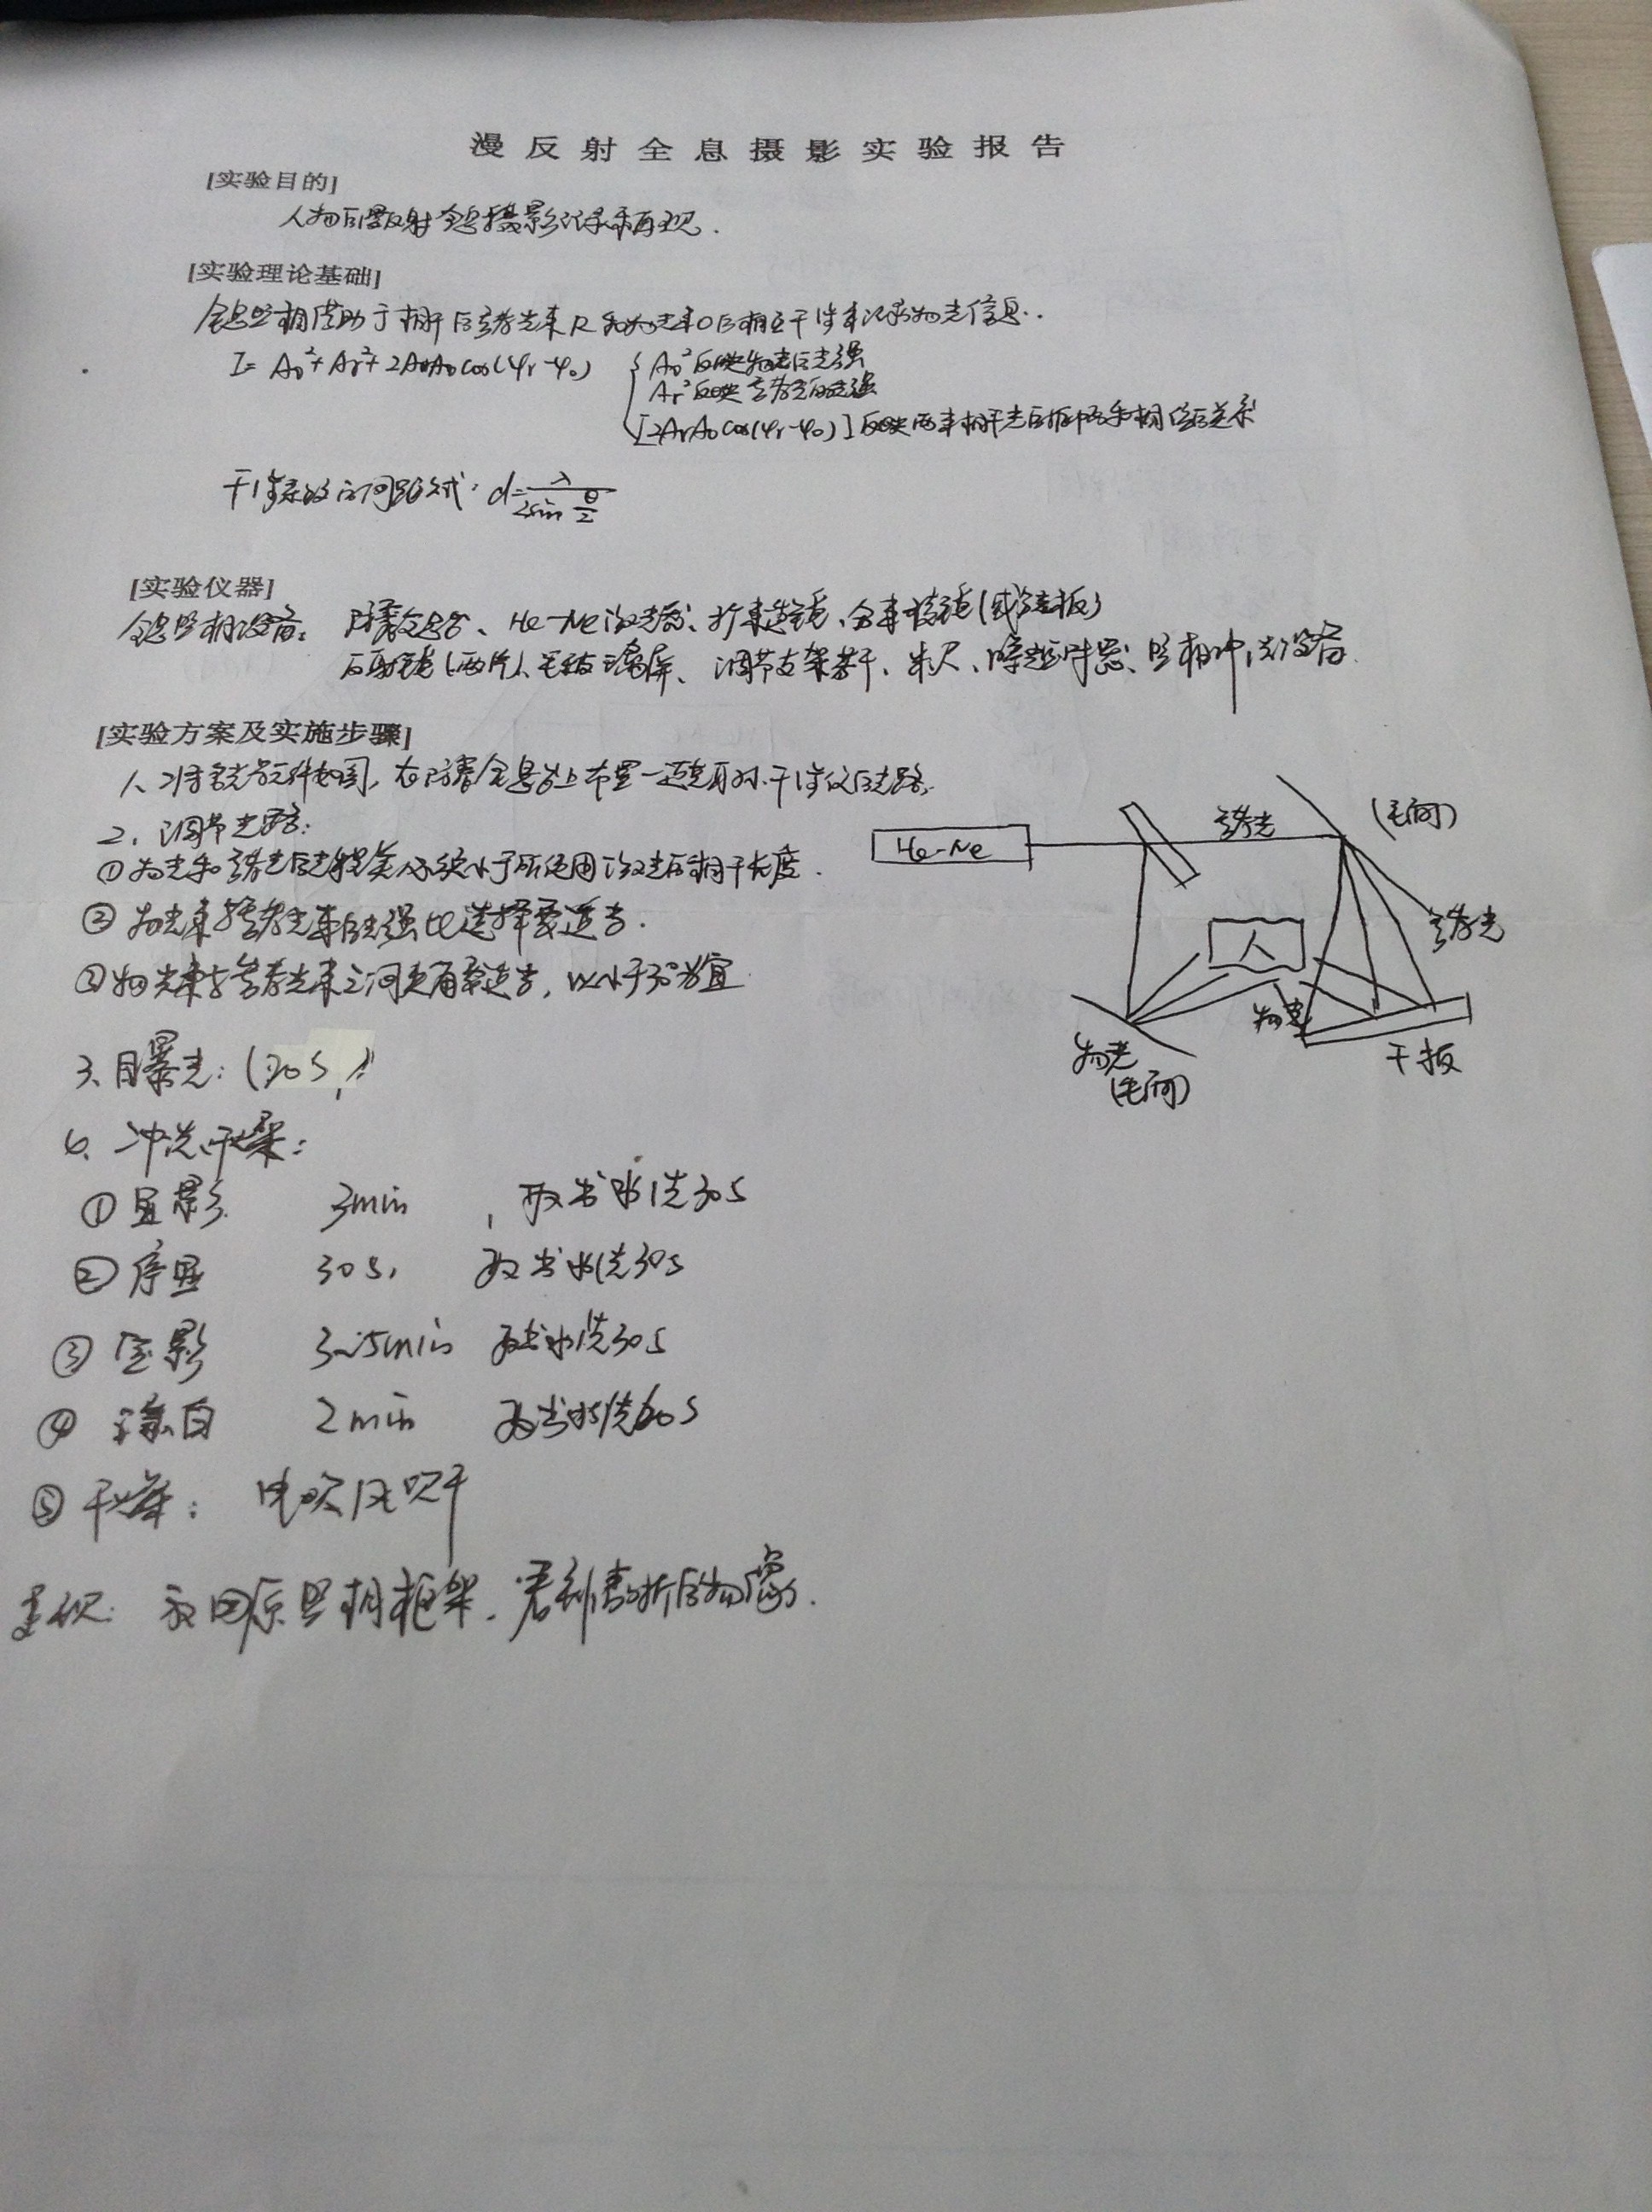 漫反射全息摄影实验报告
[实验目的]
人物的漫反射全息摄影记录和再现.
[实验理论基础]
全息照相借助于相干的参考光束R和物光束O的相互干涉来记录物光信息..
I= Ao²+Ar²+2ArAo cos(φr-φo) { Ao²反映物光的光强
Ar²反映参考光的光强
[2ArAo cos(φr-φo)]反映两束相干光的振幅和相位的关系
干涉条纹的间距公式: d=λ/(2sin θ/2)
[实验仪器]
全息照相设备: 防震全息台、He-Ne激光器、扩束透镜、分束棱镜(或分光板)
反射镜(两片)、毛玻璃屏、调节支架若干、米尺、曝光定时器、照相冲洗设备.
[实验方案及实施步骤]
1、将各光学元件如图,在防震全息台上布置一迈克耳孙干涉仪的光路.
2. 调节光路:
①物光和参考光的光程差必须小于所使用激光的相干长度.
②物光束与参考光束的光强比选择要适当.
③物光束与参考光束之间夹角要适当,以小于30°为宜
He-Ne
参考光
参考光
人
物光
物光
干板
3、曝光: (20s)
4. 冲洗、干燥:
①显影 3min , 取出水洗30s
②停显 30s, 取出水洗30s
③定影 3~5min 取出水洗30s
④漂白 2min 取出水洗
⑤干燥: 电吹风吹干
放回原照相框架. 看到清晰的物像.